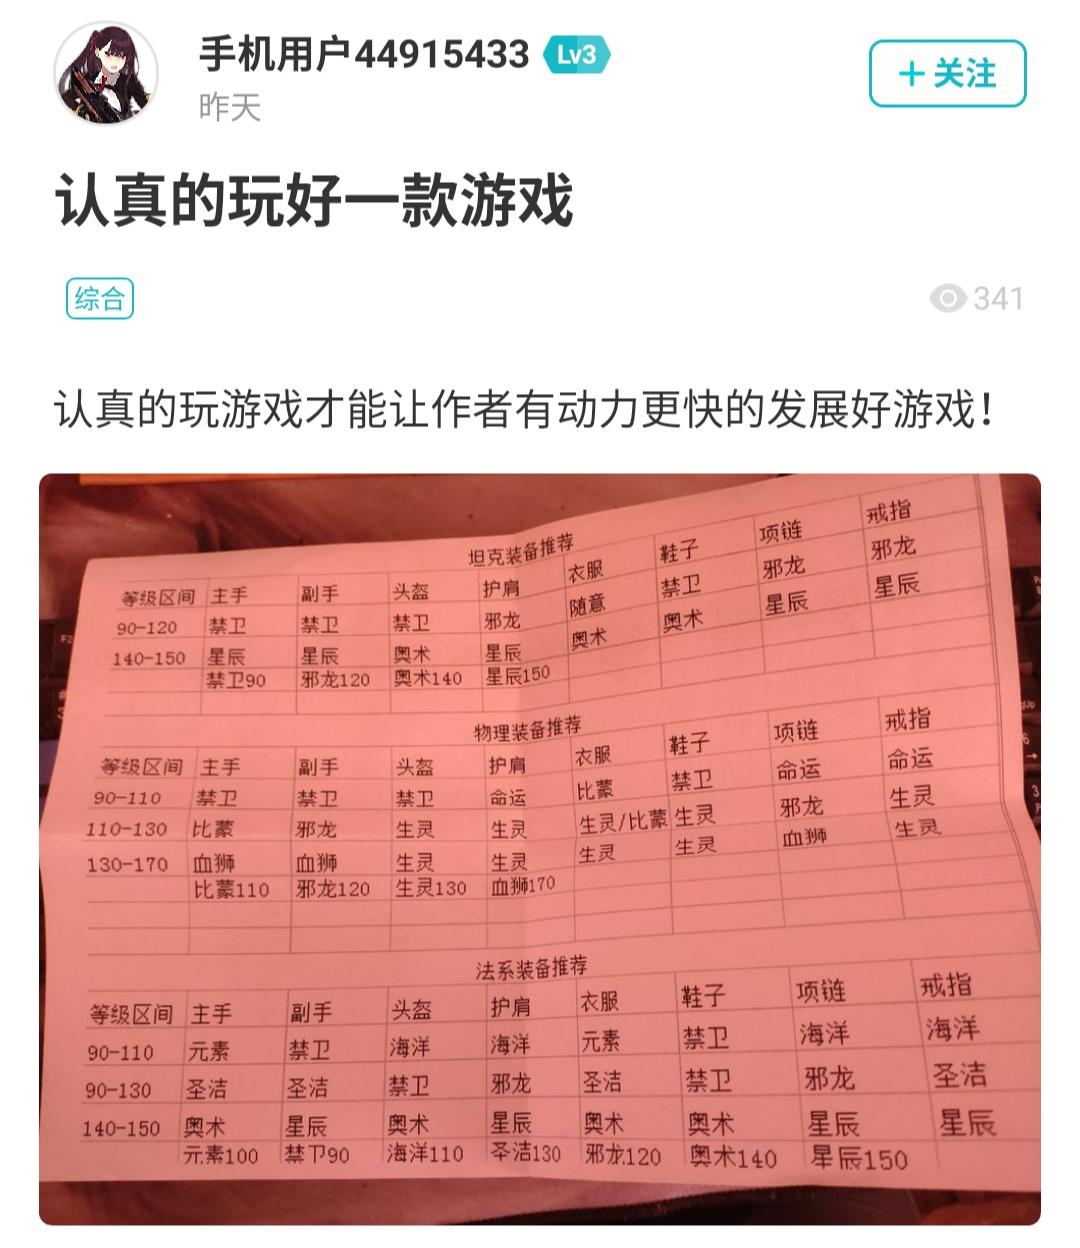 手机用户44915433 Lv3
昨天
+关注
认真的玩好一款游戏
综合
341
认真的玩游戏才能让作者有动力更快的发展好游戏！
坦克装备推荐
等级区间 主手 副手 头盔 护肩 衣服 鞋子 项链 戒指
90-120 禁卫 禁卫 禁卫 邪龙 随意 禁卫 邪龙 邪龙
140-150 星辰 星辰 奥术 星辰 奥术 奥术 星辰 星辰
禁卫90 邪龙120 奥术140 星辰150
物理装备推荐
等级区间 主手 副手 头盔 护肩 衣服 鞋子 项链 戒指
90-110 禁卫 禁卫 禁卫 命运 比蒙 禁卫 命运 命运
110-130 比蒙 邪龙 生灵 生灵 生灵/比蒙 生灵 邪龙 生灵
130-170 血狮 血狮 生灵 生灵 生灵 生灵 血狮 生灵
比蒙110 邪龙120 生灵130 血狮170
法系装备推荐
等级区间 主手 副手 头盔 护肩 衣服 鞋子 项链 戒指
90-110 元素 禁卫 海洋 海洋 元素 禁卫 海洋 海洋
90-130 圣洁 圣洁 禁卫 邪龙 圣洁 禁卫 邪龙 圣洁
140-150 奥术 星辰 奥术 星辰 奥术 奥术 星辰 星辰
元素100 禁卫90 海洋110 圣洁130 邪龙120 奥术140 星辰150